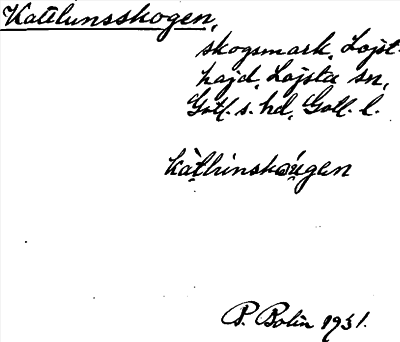 Katlunsskogen,
skogsmark, Lojst-
hajd, Lojsta sn,
Gotl. s. hd, Gotl. l.
P. Bolin 1931.